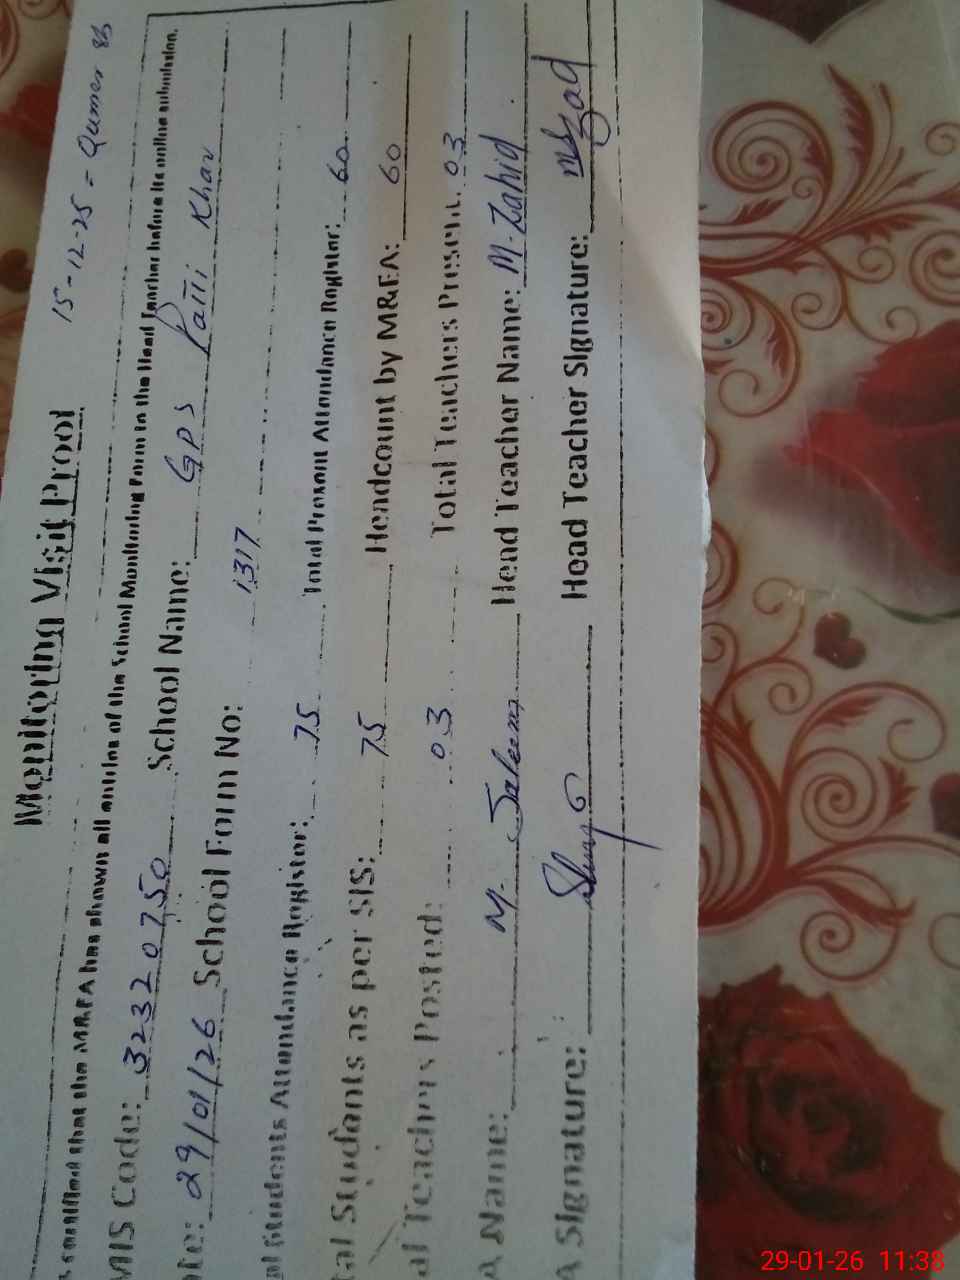 15-12-25 = Qumer 83
Monitoring Visit Proof
is certified that the M&EA has shown all entries of the School Monitoring Form to the Head Teacher before its online submission.
MIS Code: 32320750 School Name: GPS Khan
ate: 29/01/26 School Form No: 1317
al Students Attendance Register: 75 Total Present Attendance Register: 60
tal Students as per SIS: 75 Headcount by M&EA: 60
al Teachers Posted: 03 Total Teachers Present: 03
A Name: M. Saleem Head Teacher Name: M. Zahid
A Signature: Head Teacher Signature:
29-01-26 11:38